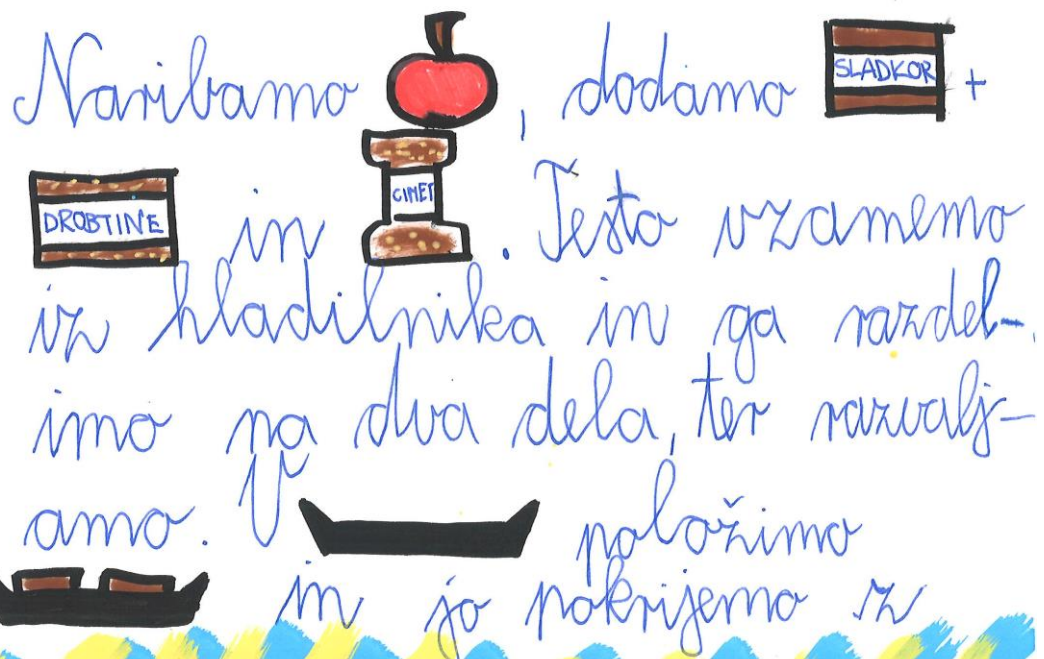 Naribamo , dodamo SLADKOR +
DROBTINE in CIMET . Testo vzamemo
iz hladilnika in ga razdel-
imo na dva dela, ter razvalj-
amo. V položimo
in jo pokrijemo z